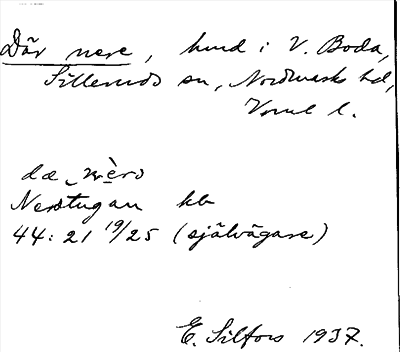 Där nere, hmd i V. Boda,
Silleruds sn, Nordmarks hd,
Verml l.
dæ ̮ nèro
Nerstugan kb
44:21 19/25 (självägare)
E. Silfors 1937.